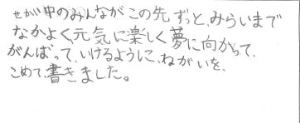 せかい中のみんながこの先ずっと、みらいまで
なかよく元気に楽しく夢に向かって、
がんばって、いけるように、ねがいを、
こめて書きました。